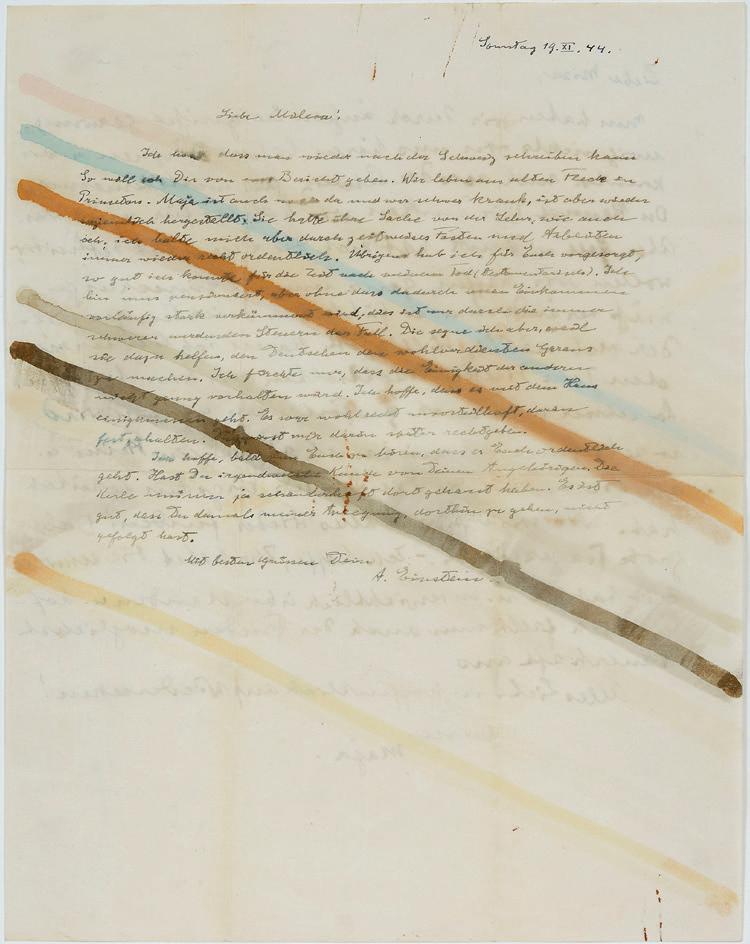 Sonntag 19. XI. 44.
Liebe Mileva!
Ich höre dass man wieder nach der Schweiz schreiben kann
So will ich Dir von uns Bericht geben. Wir leben am alten Fleck in
Princeton. Maja ist auch noch da und war schwer krank, ist aber wieder
ziemlich hergestellt. Sie hatte ihre Sache von der Leber, wie auch
ich. ich halte mich aber durch zeitweises Fasten und Arbeiten
immer wieder recht ordentlich. Übrigens hab ich für Euch vorgesorgt,
so gut ich konnte für die Zeit nach meinem Tod (Testamentarisch). Ich
bin nun pensioniert, aber ohne dass dadurch mein Einkommen
vorläufig stark verkümmert wird, dies ist nur durch die immer
schwerer werdenden Steuern der Fall. Die segne ich aber, weil
sie dazu helfen, den Deutschen den wohlverdienten Garaus
zu machen. Ich fürchte nur, dass die Einigkeit der anderen
nicht genug vorhalten wird. Ich hoffe, dass es mit dem Haus
einigermassen geht. Es war wohl recht unvorteilhaft, daran
festzuhalten. gibst mir darin später recht geben.
Ich hoffe, bald von Euch zu hören, dass es Euch ordentlich
geht. Hast Du irgendwelche Kunde von Deinen Angehörigen. Die
Kerle müssen ja schauderhaft dort gehaust haben. Es ist
gut, dass Du damals meiner Anregung, dorthin zu gehen, nicht
gefolgt hast.
Mit besten Grüssen Dein
A. Einstein.